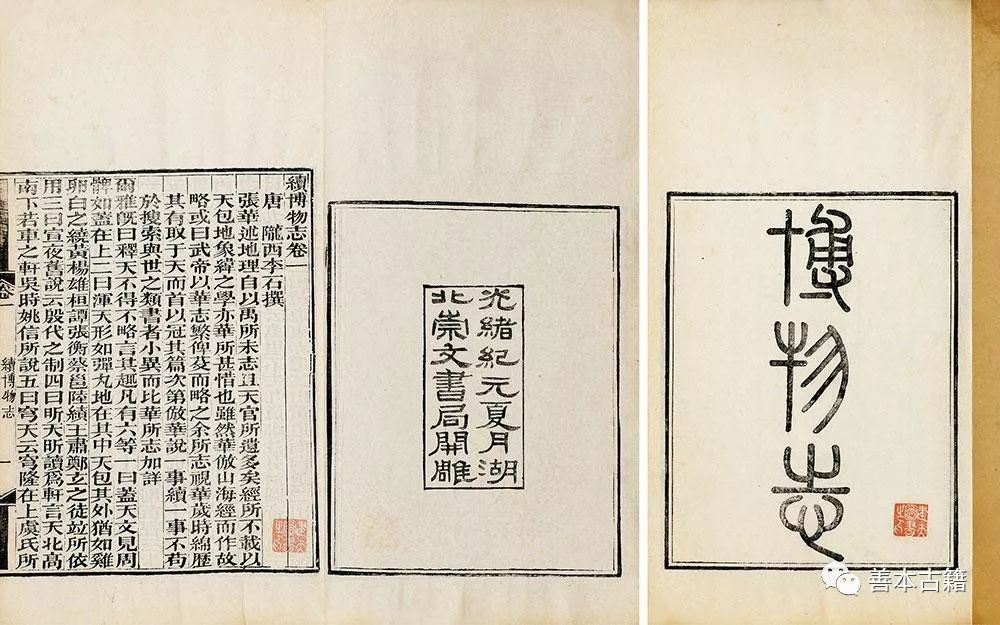 博物志
光緒紀元夏月湖
北崇文書局開雕
續博物志卷一
唐 隴西李石撰
張華述地理自以禹所未志且天官所遺多矣經所不載以
天包地象緯之學亦華所甚惜也雖然華倣山海經而作故
略或曰武帝以華志繁俾芟而略之余所志視華歲時綿歷
其有取于天而首以冠其篇次第倣華說一事續一事不苟
於搜索與世之類書者小異而比華所志加詳
爾雅旣曰釋天不得不略言其趣凡有六等一曰蓋天文見周
髀如蓋在上二曰渾天形如彈丸地在其中天包其外猶如雞
卵白之繞黃楊雄桓譚張衡蔡邕陸績王肅鄭玄之徒竝所依
用三曰宣夜舊說云殷代之制四曰昕天昕讀爲軒言天北高
南下若車之軒吳時姚信所說五曰穹天云穹隆在上虞氏所
卷一
續博物志
一
善本古籍